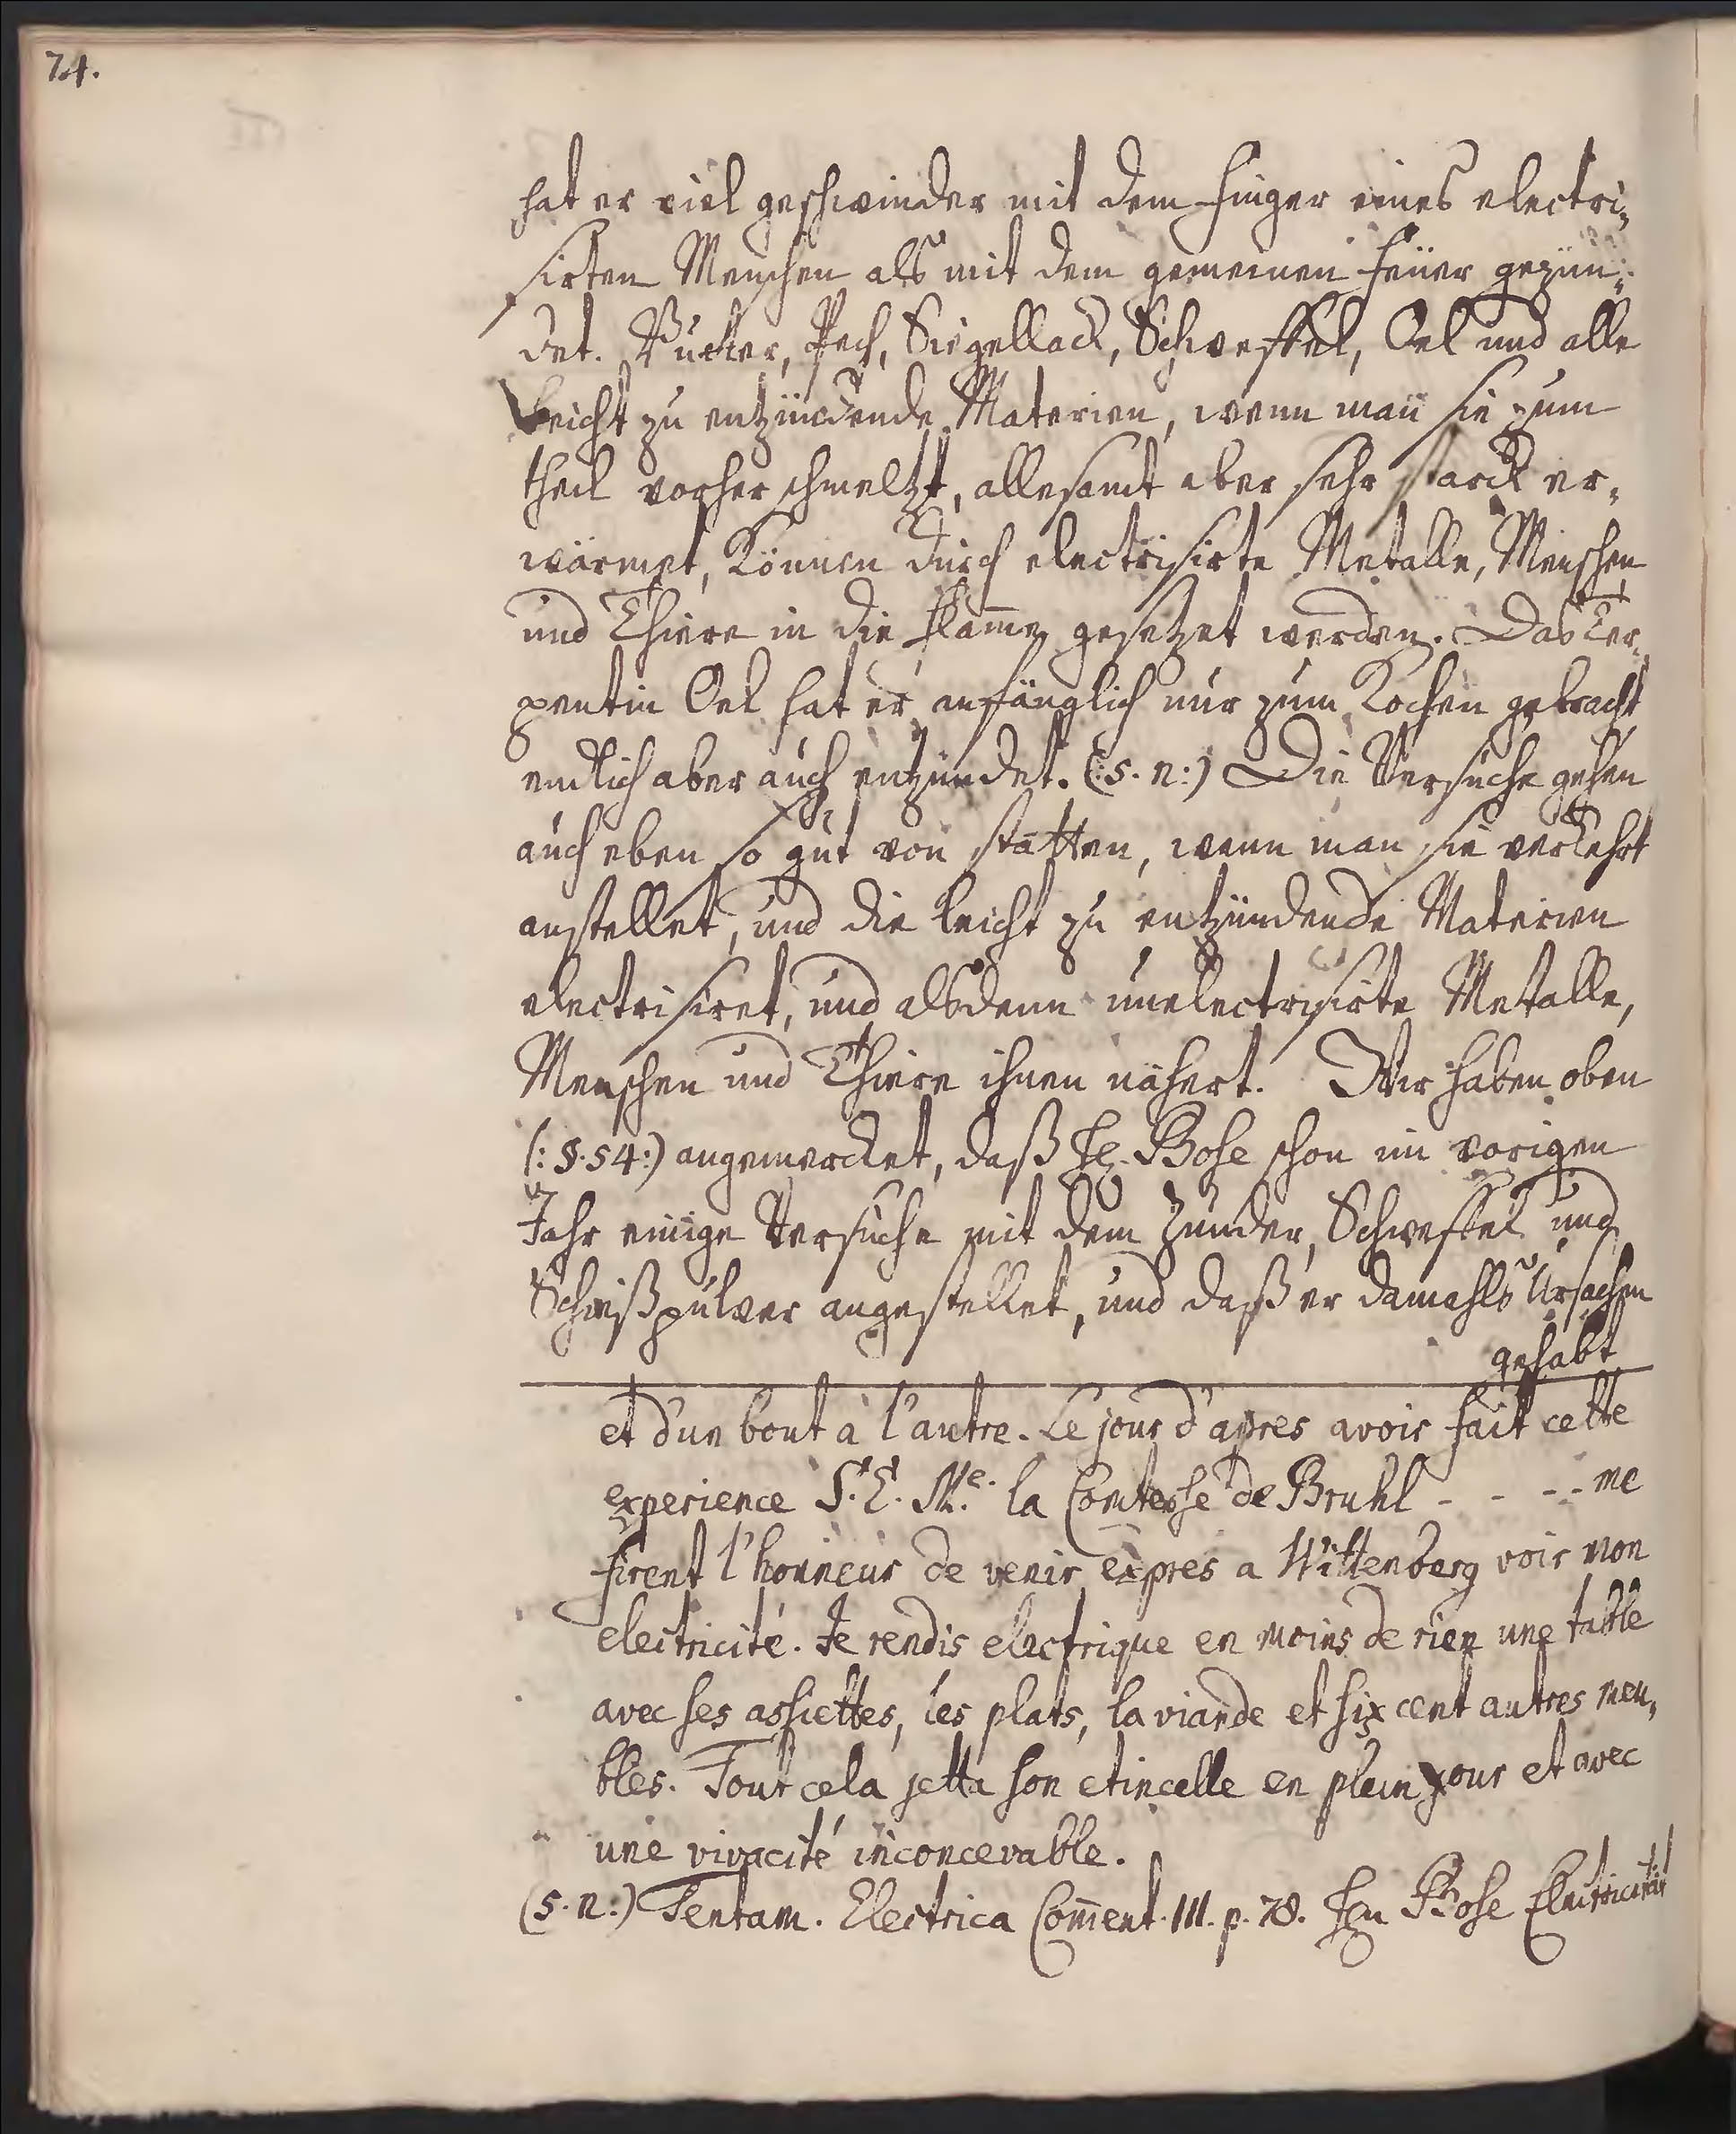 74.
hat er viel geschwinder mit dem Finger eines electri„
sirten Menschen als mit dem gemeinen Feüer gezün„
det. Zucker, Pech, Siegellack, Schweffel, Oel und alle
leicht zu entzündende Materien, wenn man sie zum
theil vorher schmeltzt, allesamt aber sehr starck er„
wärmet, können durch electrisirte Metalle, Menschen
und Thiere in die Flam̄e gesetzet werden. Das Ter„
pentin Oel hat er anfänglich nur zum Kochen gebracht
endlich aber auch entzündet. (:s. n:) Die Versuche gehen
auch eben so gut von statten, wenn man sie verkehrt
anstellet, und die leicht zu entzündende Materien
electrisiret, und alsdenn unelectrisirte Metalle,
Menschen und Thiere ihnen nähert. Wir haben oben
(: §. 54:) angemercket, daß H. Bose schon im vorigen
Jahr einige Versuche mit dem Zunder, Schweffel und
Schießpulver angestellet, und daß er damahls Ursachen
gehabt
et d'un bout à l'autre. Le jour d'apres avoir fait cette
experience S. E. Me. la Comtesse de Bruhl - - - - me
firent l'honneur de venir expres a Wittenberg voir mon
electricité. Je rendis electrique en moins de rien une table
avec ses assiettes, les plats, la viande et six cent autres meu„
bles. Tout cela jetta son etincelle en plein jour et avec
une vivacité inconcevable.
(s. n:) Tentam. Electrica Com̄ent. III. p. 78. Hn Bose Electricität